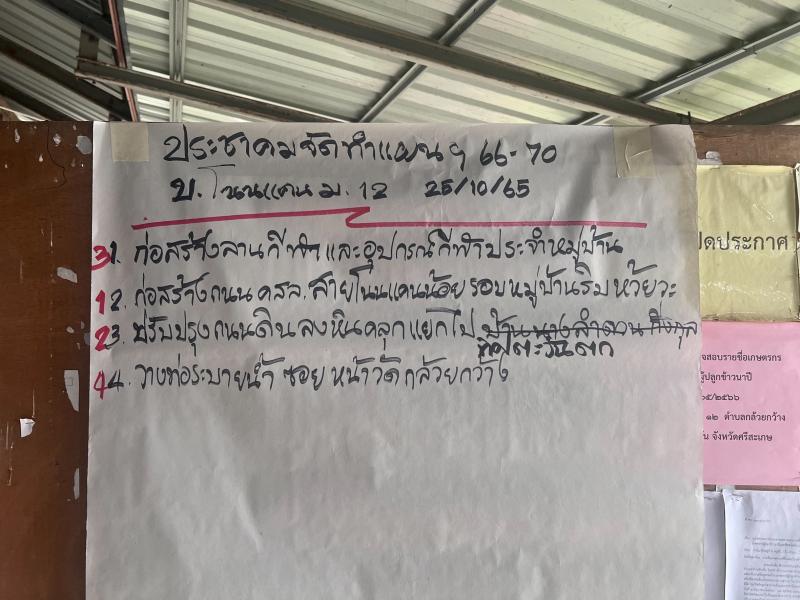 ประชาคมจัดทำแผน ฯ 66-70
บ.โนนแคน ม.12 25/10/65
31. ก่อสร้างลานกีฬา และอุปกรณ์กีฬาประจำหมู่บ้าน
12. ก่อสร้างถนน คสล. สายโนนแคนน้อย รอบหมู่บ้านริมห้วยวะ
23. ปรับปรุงถนนดินลงหินคลุก แยกไป บ้านนางลำดวน กิ่งกุล
ทิศตะวันตก
44. วางท่อระบายน้ำ ซอย หน้าวัดกล้วยกว้าง
ปิดประกาศ
จสอบรายชื่อเกษตรกร
ผู้ปลูกข้าวนาปี
๖๕/๒๕๖๖
๑๒ ตำบลกล้วยกว้าง
ัน จังหวัดศรีสะเกษ